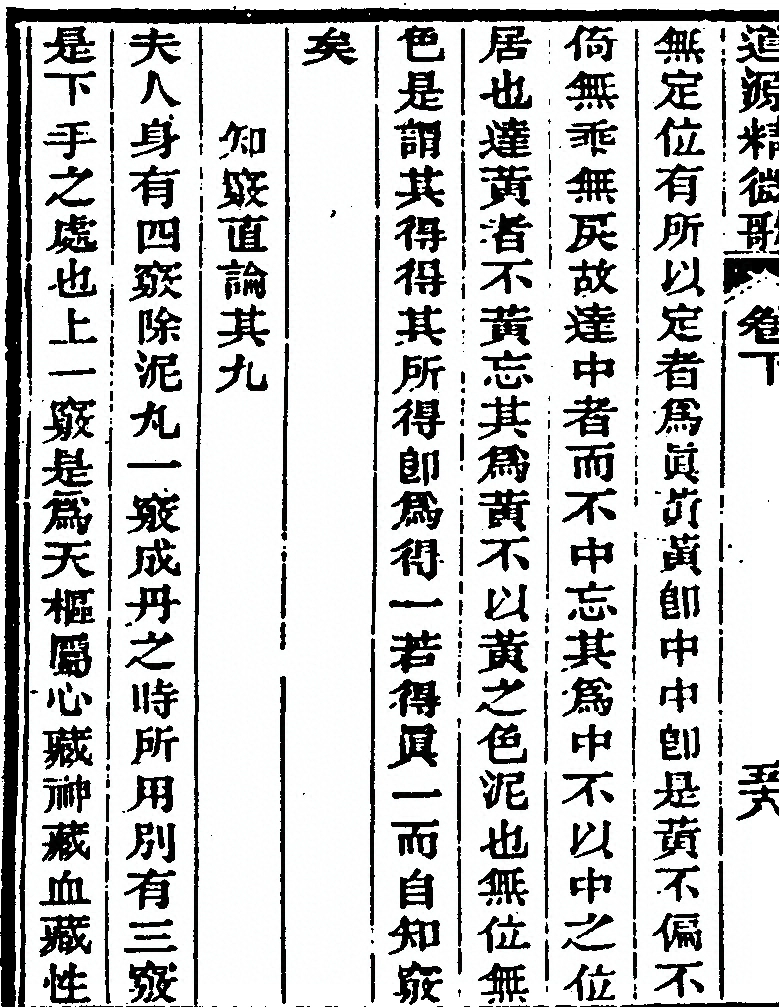 道源精微歌 卷下 五六
無定位有所以定者爲眞黃黃卽中中卽是黃不偏不
倚無乖無戾故達中者而不中忘其爲中不以中之位
居也達黃者不黃忘其爲黃不以黃之色泥也無位無
色是謂其得得其所得卽爲得一若得眞一而自知竅
矣
知竅直論其九
夫人身有四竅除泥丸一竅成丹之時所用別有三竅
是下手之處也上一竅是爲天樞屬心藏神藏血藏性